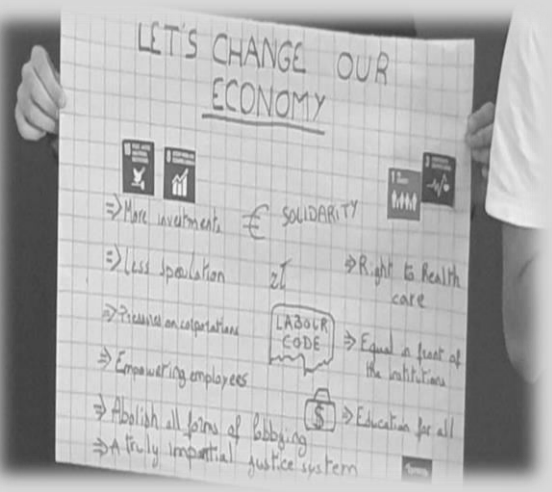 LET'S CHANGE OUR
ECONOMY
⇒ More investments
€ SOLIDARITY
⇒ Less speculation
zł
⇒ Right to Health
care
⇒ Pressures on corporations
LABOUR
CODE
⇒ Equal in front of
the institutions
⇒ Empowering employees
$
⇒ Education for all
⇒ Abolish all forms of lobbying
⇒ A truly impartial justice system